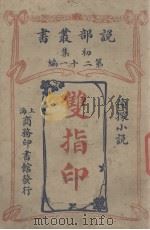 說部叢書
初集
第二十一編
偵探小說
雙指印
上海
商務印書館發行